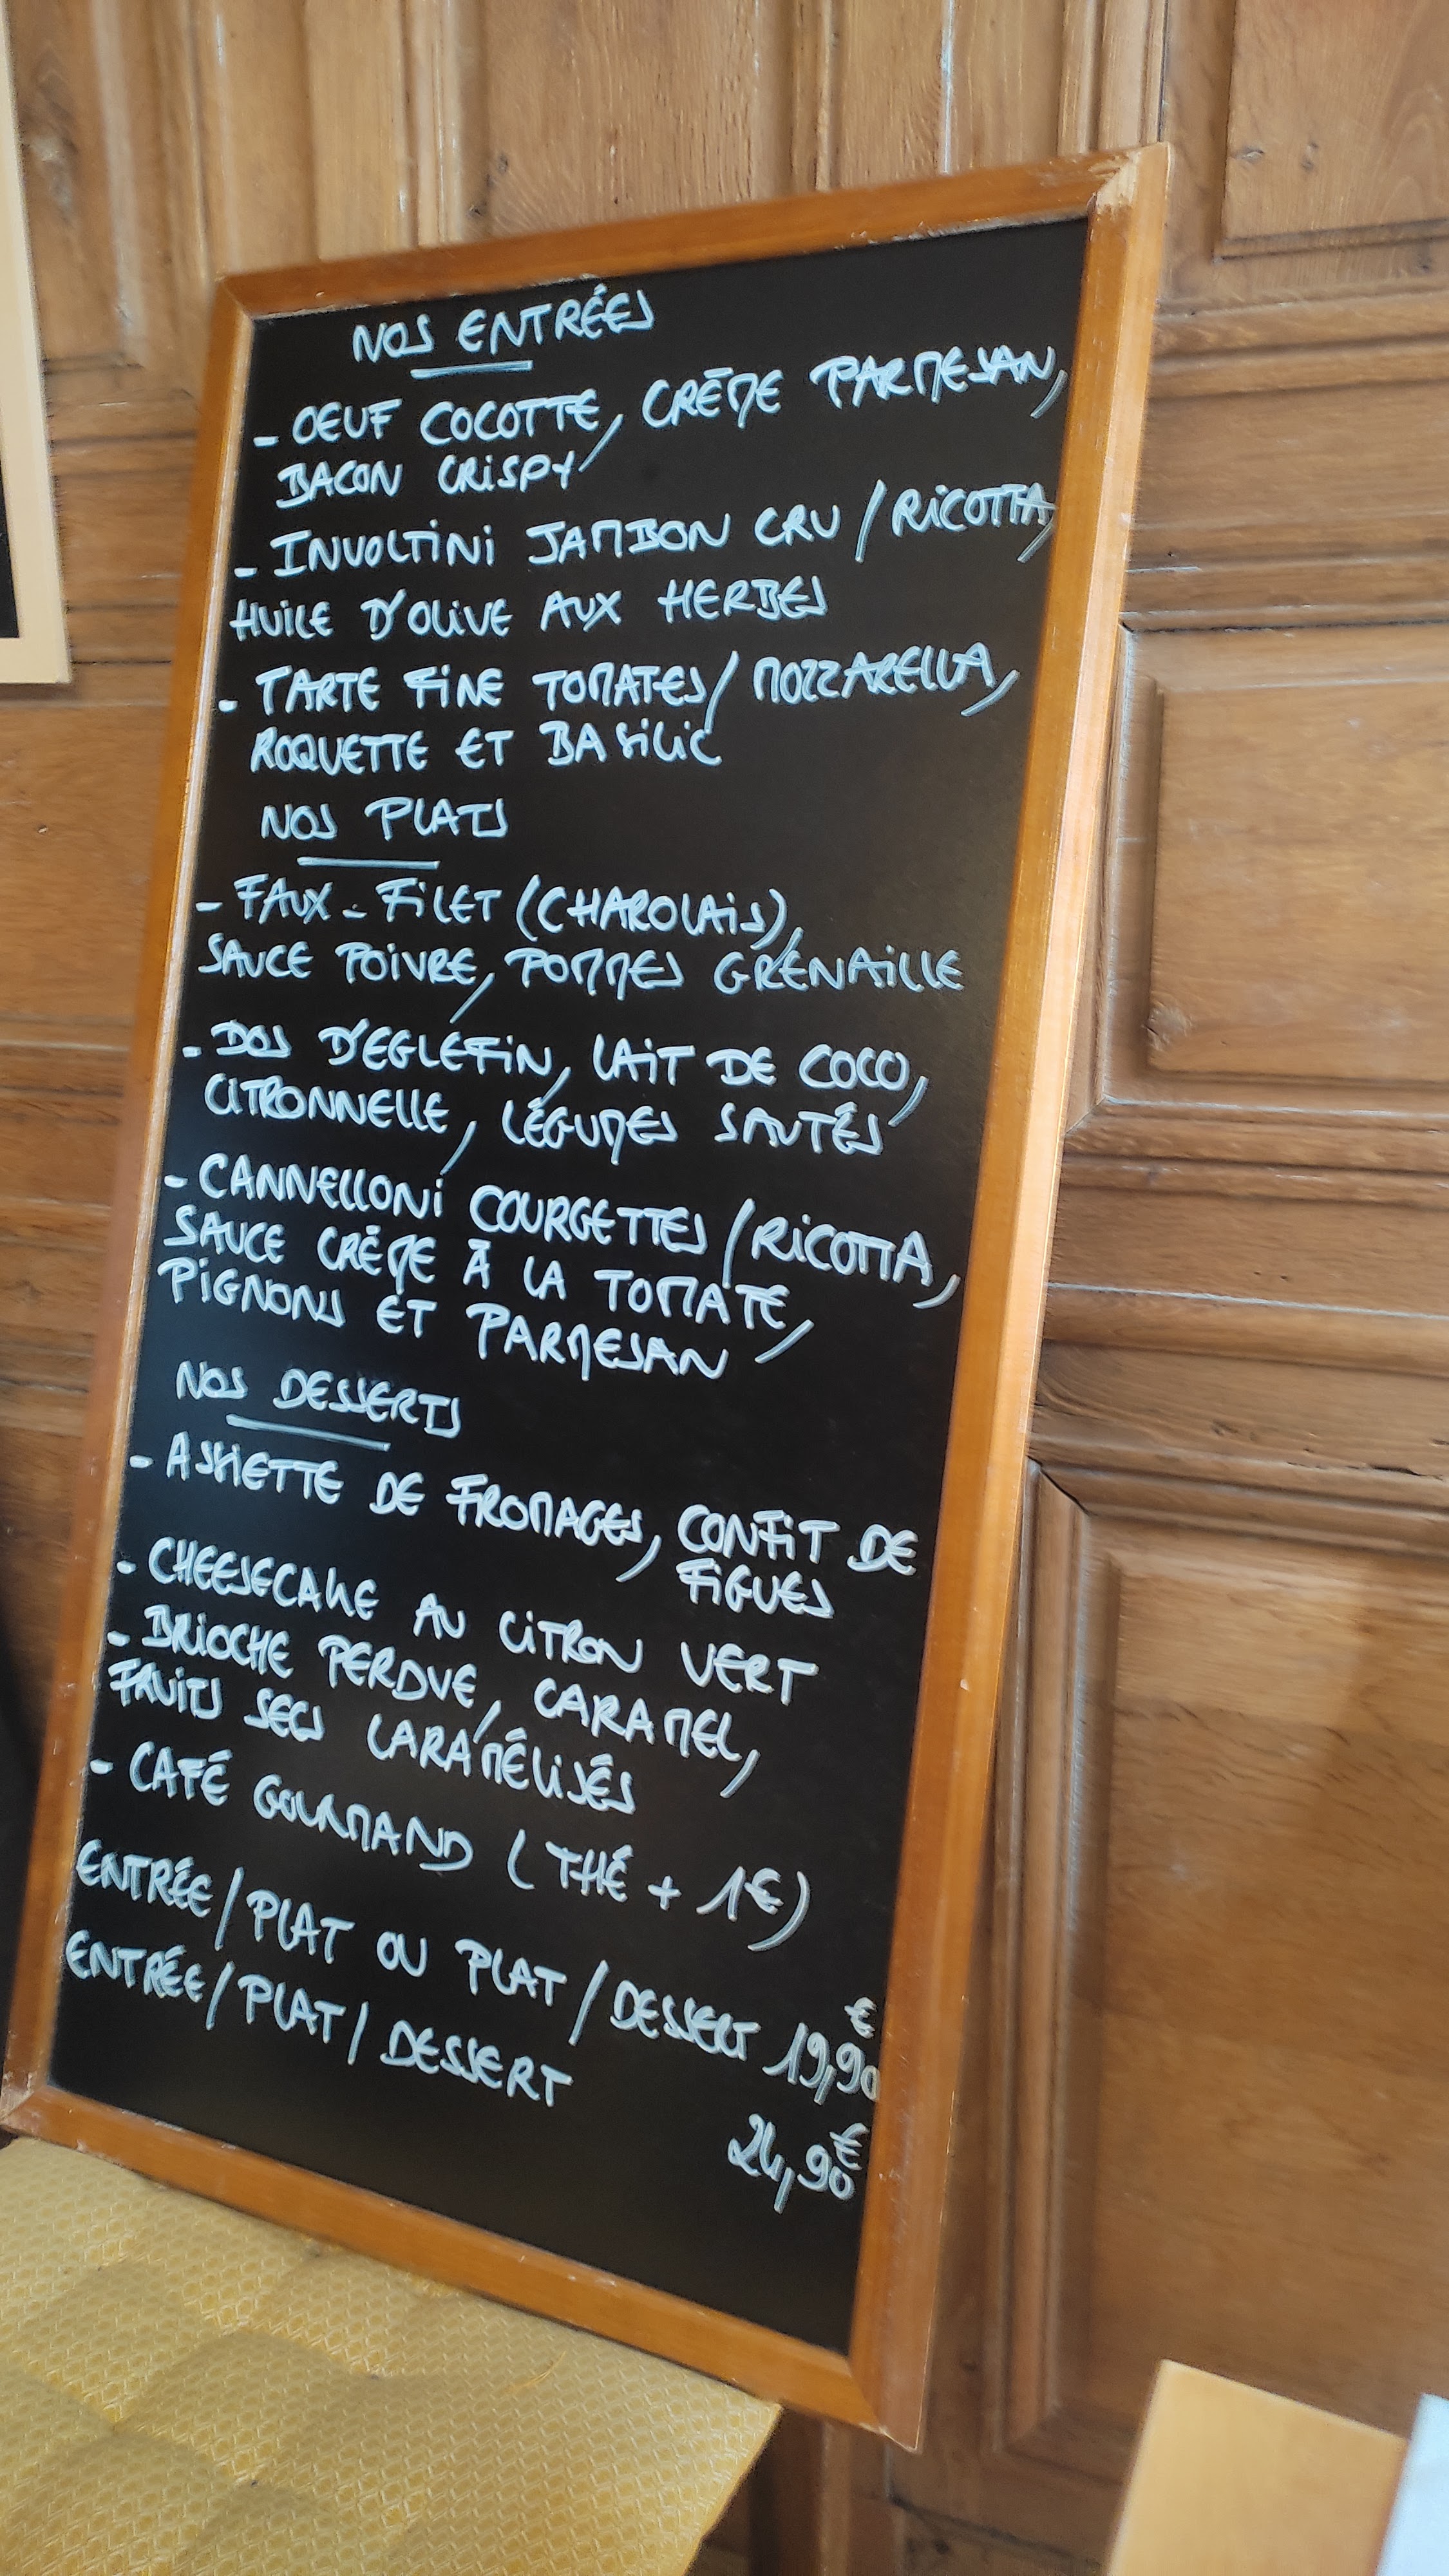 NOS ENTRÉES
- OEUF COCOTTE, CRÈME PARMESAN,
BACON CRISPY
- INVOLTINI JAMBON CRU / RICOTTA,
HUILE D'OLIVE AUX HERBES
- TARTE FINE TOMATES / MOZZARELLA,
ROQUETTE ET BASILIC
NOS PLATS
- FAUX-FILET (CHAROLAIS),
SAUCE POIVRE, POMMES GRENAILLE
- DOS D'EGLEFIN, LAIT DE COCO,
CITRONNELLE, LÉGUMES SAUTÉS
- CANNELLONI COURGETTES / RICOTTA,
SAUCE CRÈME À LA TOMATE,
PIGNONS ET PARMESAN
NOS DESSERTS
- ASSIETTE DE FROMAGES, CONFIT DE
FIGUES
- CHEESECAKE AU CITRON VERT
- BRIOCHE PERDUE, CARAMEL,
FRUITS SECS CARAMÉLISÉS
- CAFÉ GOURMAND (THÉ + 1€)
ENTRÉE / PLAT OU PLAT / DESSERT 19,90€
ENTRÉE / PLAT / DESSERT
24,90€